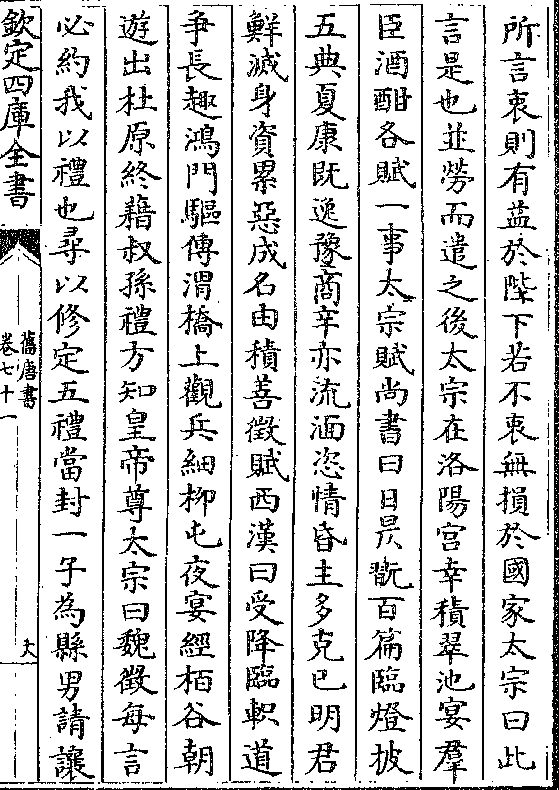 所言衷則有益於陛下若不衷無損於國家太宗曰此
言是也並勞而遣之後太宗在洛陽宮幸積翠池宴羣
臣酒酣各賦一事太宗賦尚書曰日昃翫百篇臨燈披
五典夏康既逸豫商辛亦流湎恣情昏主多克已明君
鮮滅身資累惡成名由積善徵賦西漢曰受降臨軹道
爭長趣鴻門驅傳渭橋上觀兵細柳屯夜宴經栢谷朝
遊出杜原終藉叔孫禮方知皇帝尊太宗曰魏徵每言
必約我以禮也尋以修定五禮當封一子為縣男請讓
欽定四庫全書
舊唐書
卷七十一